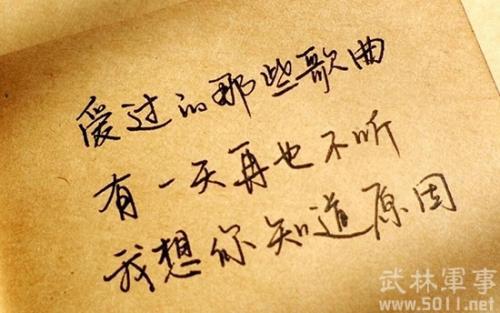 爱过的那些歌曲
有一天再也不听
我想你知道原因
武林軍事
www.5011.net